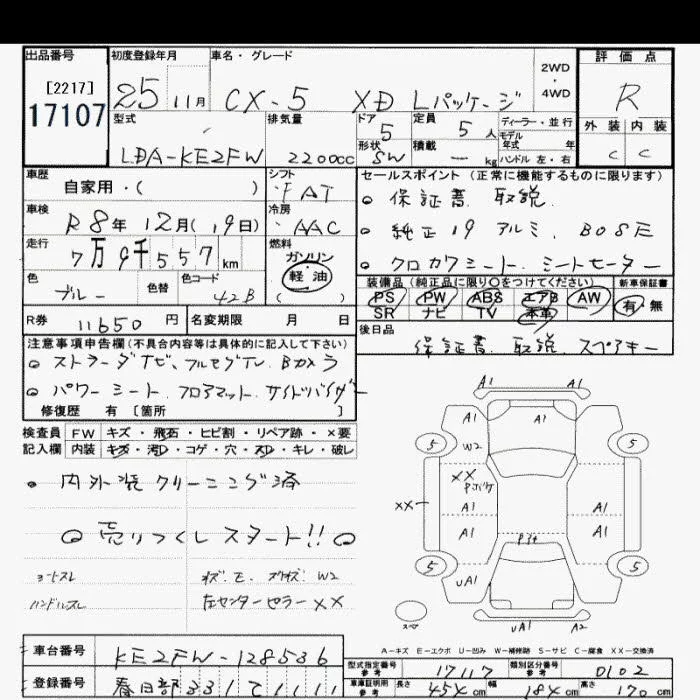 出品番号 初度登録年月 車名・グレード 2WD・4WD 評価点
[2217]
17107
25 11月 CX-5 XD Lパッケージ R
型式 排気量 ドア 5 定員 5人 ディーラー・並行 外装 内装
形状 SW 積載 ー kg モデル年式 年 C C
LDA-KE2FW 2200cc ハンドル 左・右
車歴 シフト セールスポイント (正常に機能するものに限ります)
自家用・( ) FAT 。保証書 取説
車検 冷房
R8年 12月(19日) AAC 。純正19アルミ、BOSE
走行 燃料
7万9千557km ガソリン 。クロカワシート、シートヒーター
軽油
( )
色 色替 色コード 装備品 (純正品に限り○をつけてください) 新車保証書
ブルー 42B PS PW ABS エアB AW 有・無
SR ナビ TV 本革
R券 11650円 名変期限 月 日 後日品
保証書、取説、スペアキー
注意事項申告欄(不具合内容等は具体的に記入して下さい)
。ストラーダナビ、フルセグTV、Bカメラ
。パワーシート、フロアマット、サイドバイザー
修復歴 有 [箇所 ]
検査員 FW キズ・飛石・ヒビ割・リペア跡・×要
記入欄 内装 キズ・汚D・コゲ・穴・スD・キレ・破レ
・内外装クリーニング済
。売りつくしスタート!!。
シートスレ
ハンドルスレ
左センターピラーXX
A1 A1
A1 A1
5 5
W2
XX
XX
A1 A1
A1 A1
5 5
UA1 A1
UA1 A2
A-キズ E-エクボ U-凹み W-補修跡 S-サビ C-腐食 XX-交換済
車台番号 KE2FW-128536
型式指定番号 参考 17117 類別区分番号 参考 0102
登録番号 春日部331て1111
車庫証明用 参考 長さ 454cm 幅 184cm 高さ 170cm